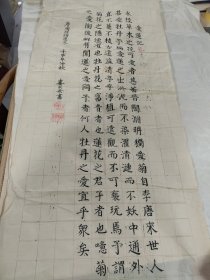 愛蓮說
水陸草木之花可愛者甚蕃晉陶淵明獨愛菊自李唐來世人
甚愛牡丹予獨愛蓮之出淤泥而不染濯清漣而不妖中通外
直不蔓不枝香遠益清亭亭淨植可遠觀而不可褻玩焉予謂
菊花之隱逸者也牡丹花之富貴者也蓮花之君子者也噫菊
之愛陶後鮮有聞蓮之愛同予者何人牡丹之愛宜乎眾矣
壬申年仲秋
書